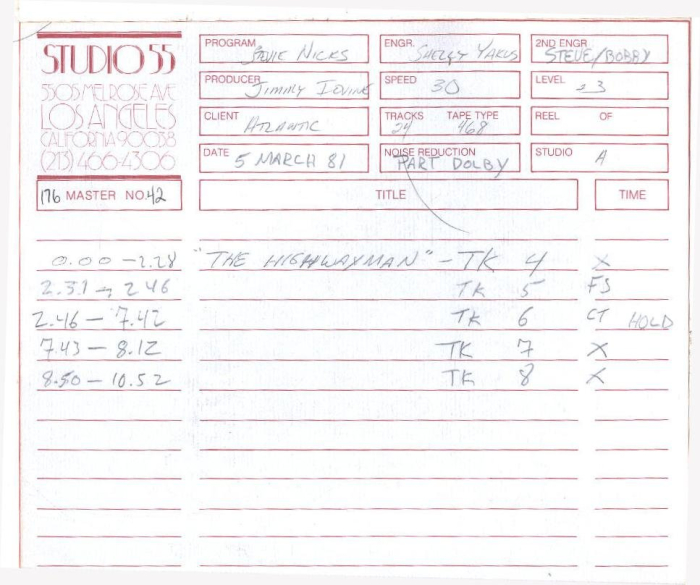 STUDIO 55
5505 MELROSE AVE
LOS ANGELES
CALIFORNIA 90038
(213) 466-4306
PROGRAM STEVIE NICKS
ENGR. SHELLY YAKUS
2ND ENGR. STEVE/BOBBY
PRODUCER JIMMY IOVINE
SPEED 30
LEVEL +3
CLIENT ATLANTIC
TRACKS 24 TAPE TYPE 468
REEL OF
DATE 5 MARCH 81
NOISE REDUCTION PART DOLBY
STUDIO A
176 MASTER NO. 42
TITLE
TIME
0.00 - 2.28 "THE HIGHWAYMAN" - TK 4 X
2.31 → 2 46 TK 5 FS
2.46 - 7.42 TK 6 CT HOLD
7.43 - 8.12 TK 7 X
8.50 - 10.52 TK 8 X